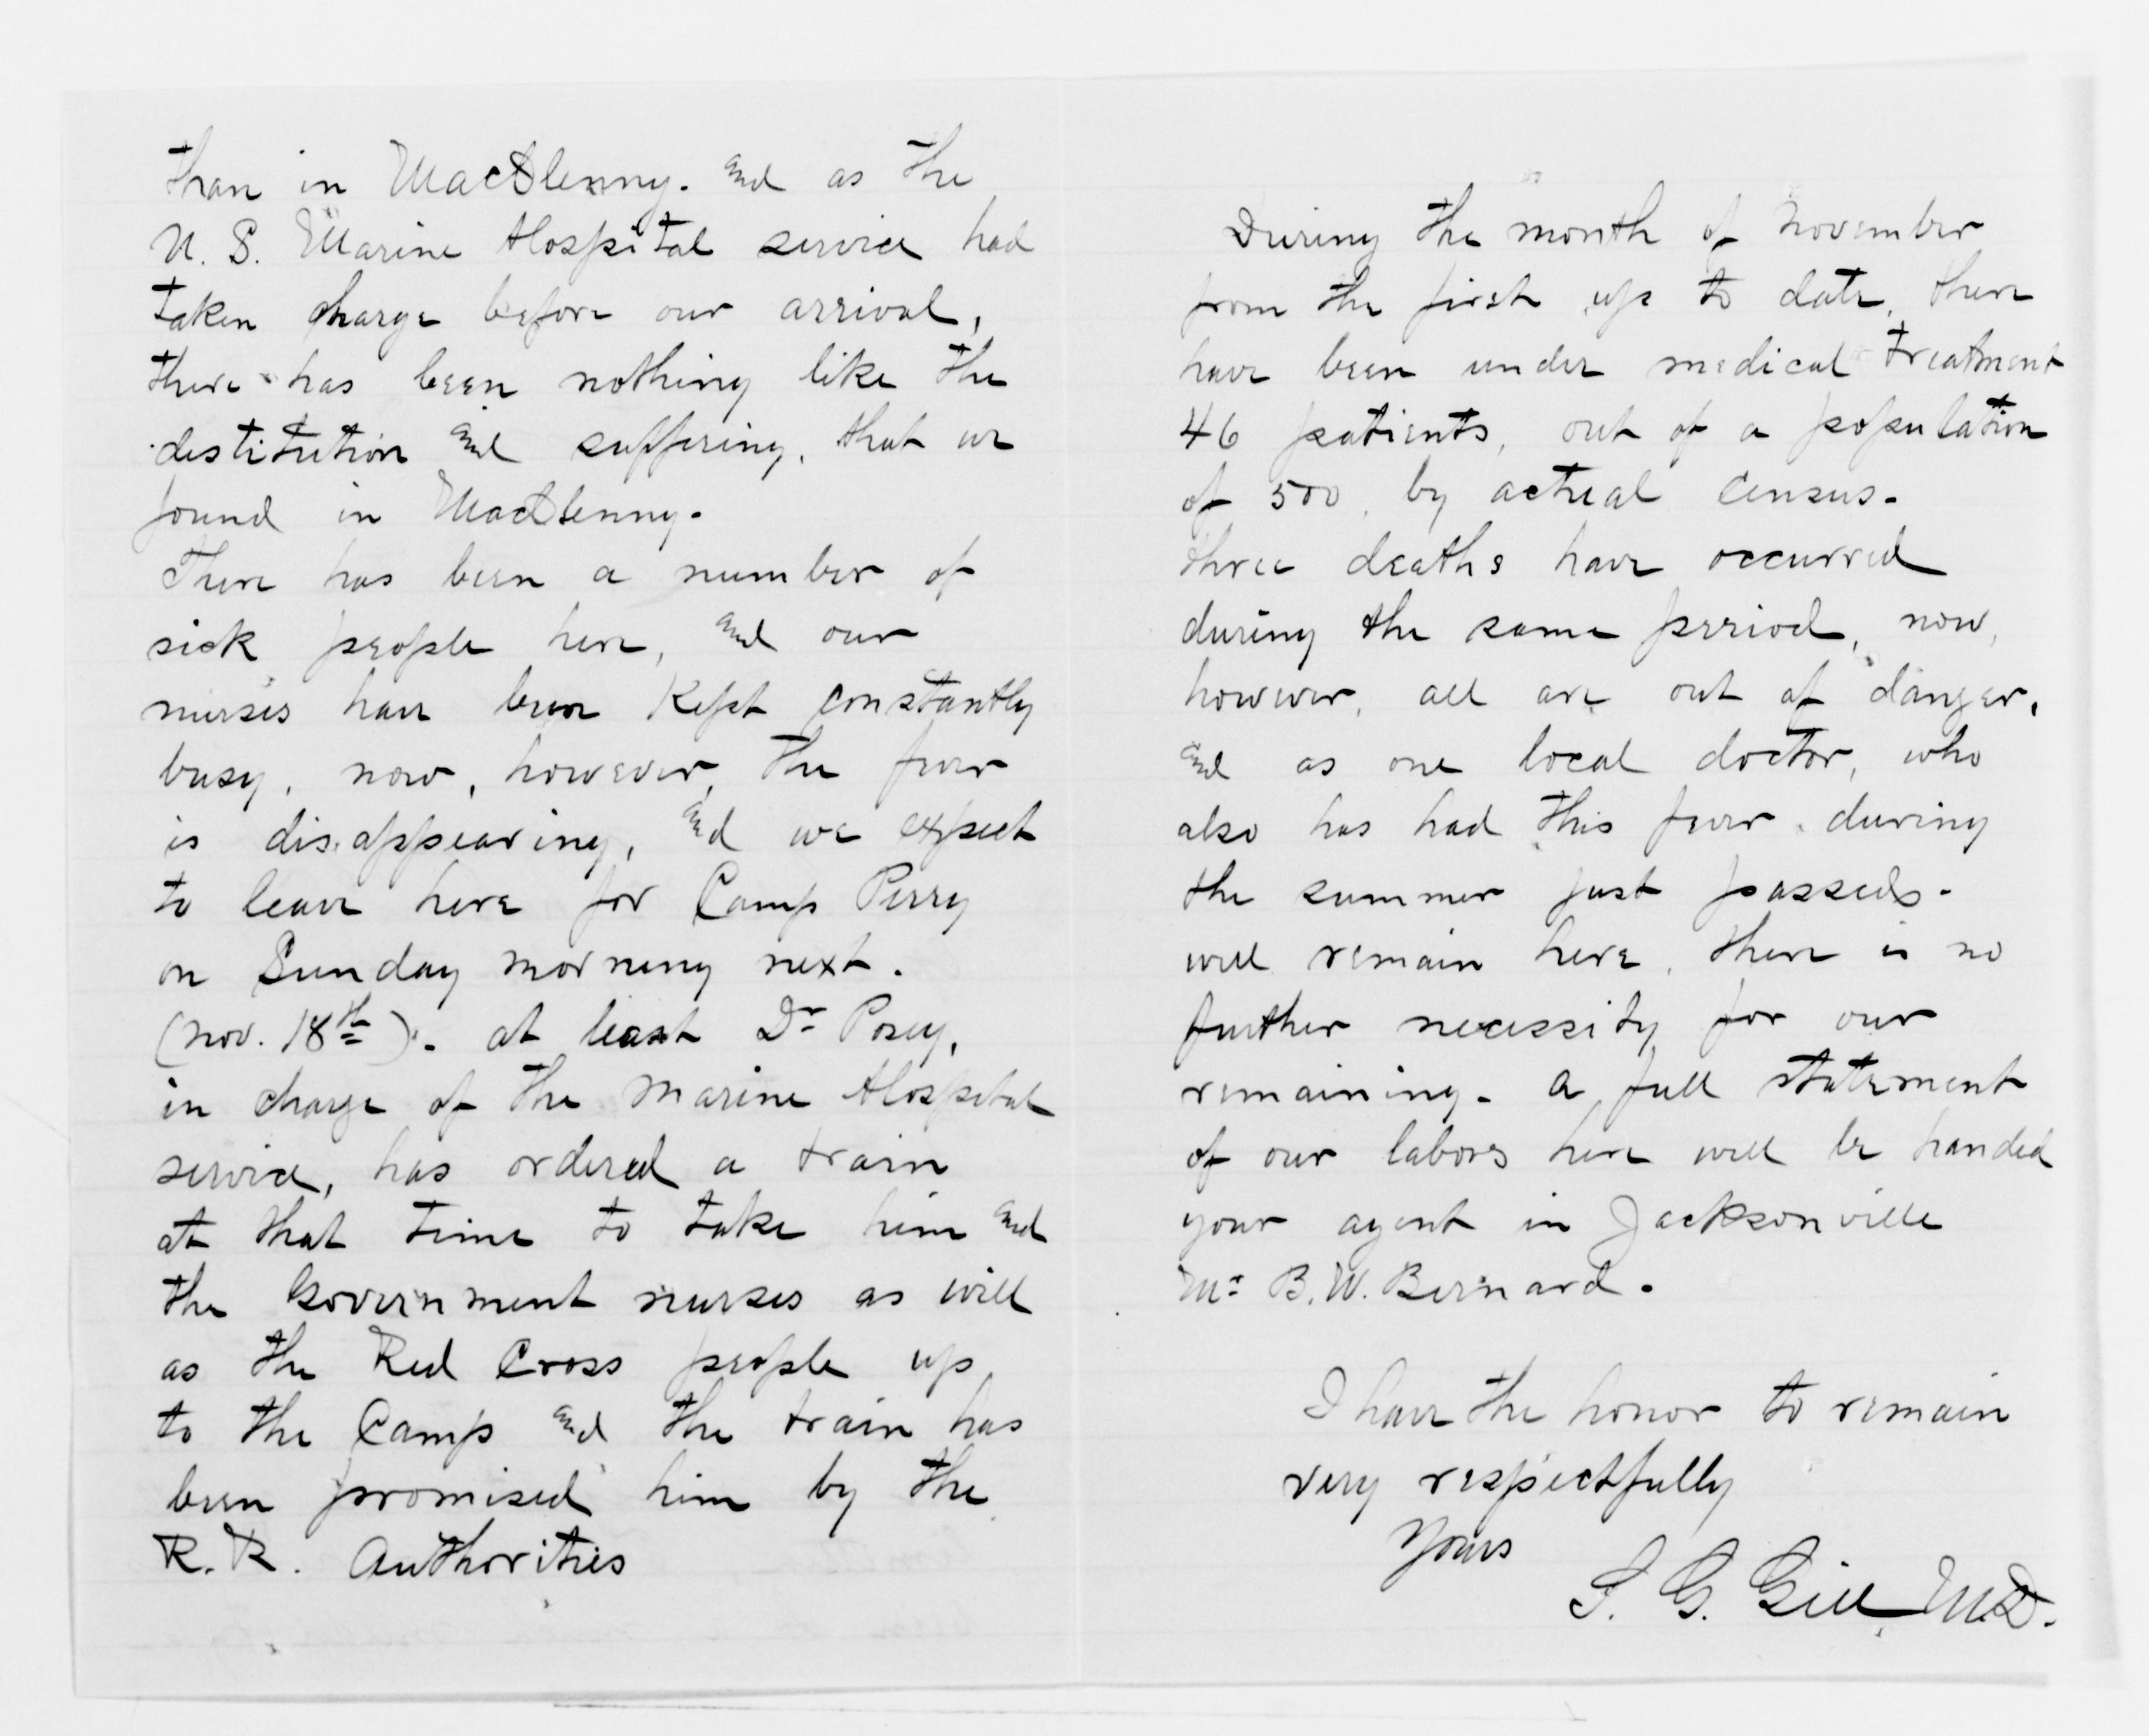 than in MacClenny. and as the
U. S. Marine Hospital service had
taken charge before our arrival,
there has been nothing like the
destitution and suffering, that we
found in MacClenny.
There has been a number of
sick people here, and our
nurses have been Kept constantly
busy, now, however, the fever
is disappearing, and we expect
to leave here for Camp Perry
on Sunday morning next.
(Nov. 18th). at least Dr Posey,
in charge of the Marine Hospital
service, has ordered a train
at that time to take him and
the Government nurses as well
as the Red Cross people up
to the Camp and the train has
been promised him by the
R.R. Authorities
During the month of November
from the first up to date, there
have been under medical treatment
46 patients, out of a population
of 500, by actual Census.
three deaths have occurred
during the same period, now,
however, all are out of danger,
and as one local doctor, who
also has had this fever, during
the summer just passed.
will remain here, there is no
further necessity for our
remaining. A full statement
of our labors here will be handed
your agent in Jacksonville
Mr B.W. Bernard.
I have the honor to remain
very respectfully
Yours
S. G. Gill M.D.